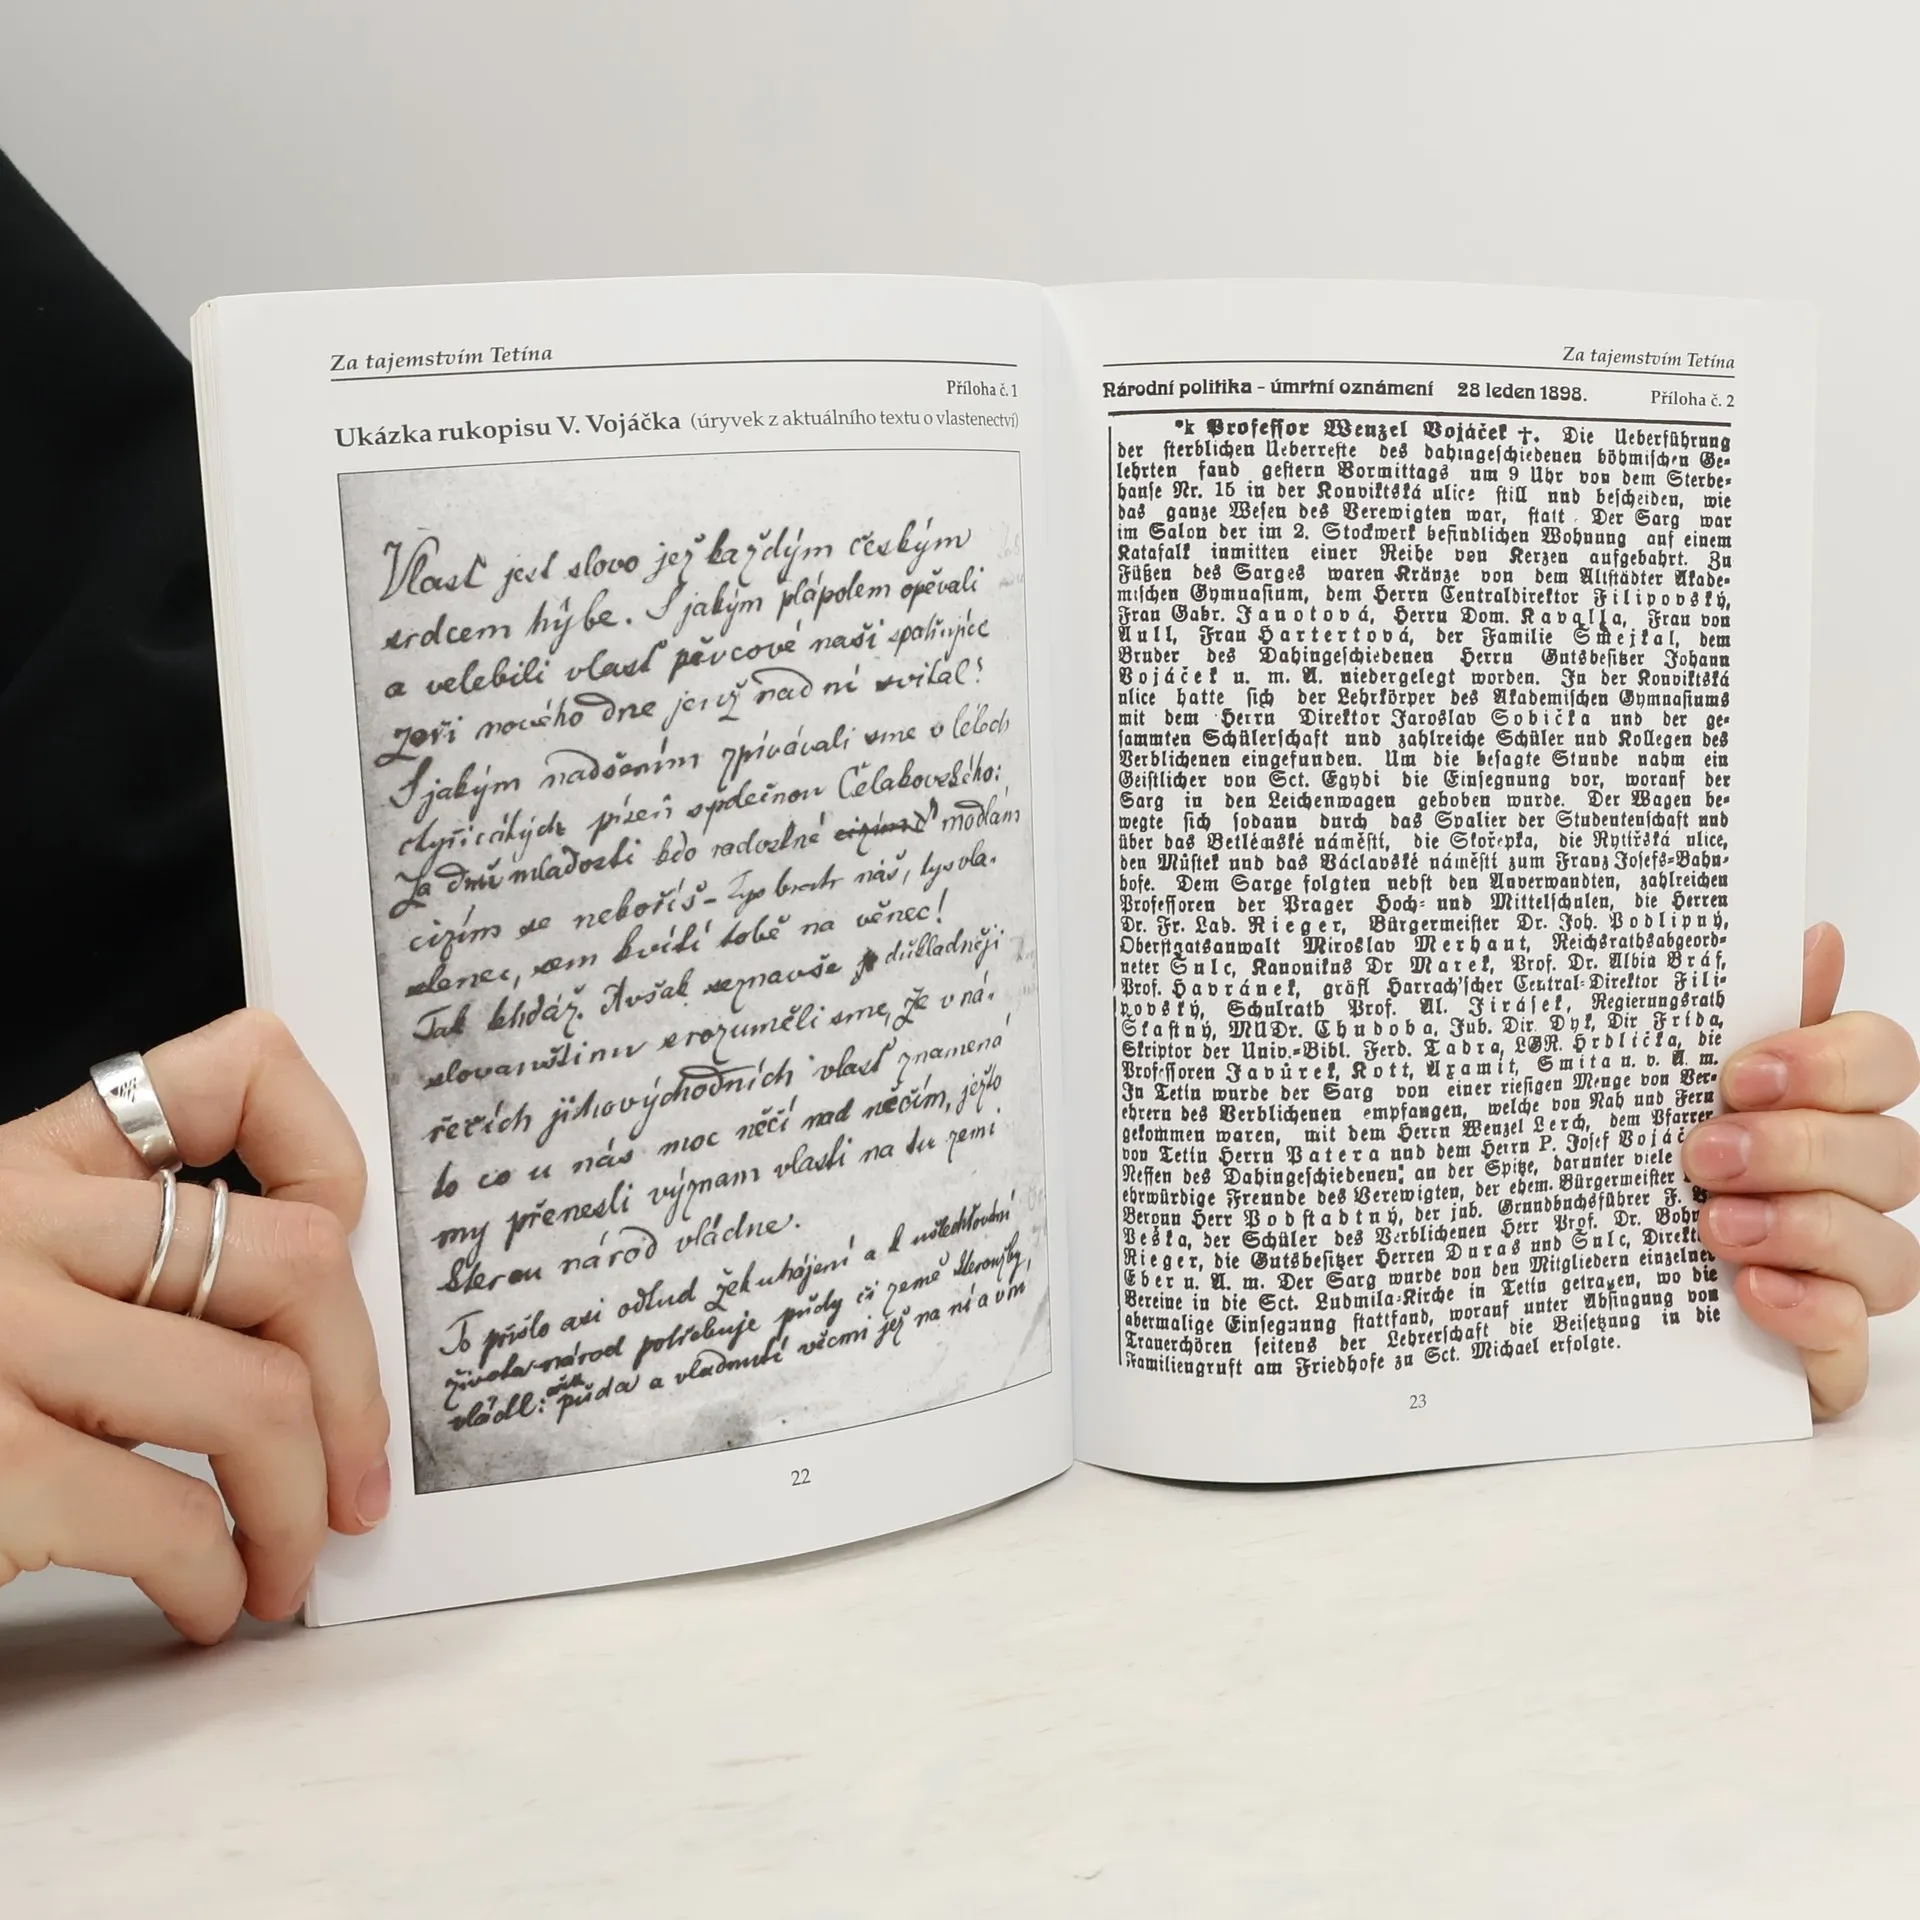 Za tajemstvím Tetína
Příloha č. 1
Ukázka rukopisu V. Vojáčka (úryvek z aktuálního textu o vlastenectví)
Vlasť jest slovo jež každým českým
srdcem hýbe. S jakým plápolem opěvali
a velebili vlasť pěvcové naši spatřujíce
zoři nového dne jenž nad ní svítal!
S jakým nadšením zpívávali sme v létech
čtyřicátých píseň společnou Čelakovského:
Za dnů mladosti kdo radostné modlám
cizím se neboříš - Tys bratr náš, tys vla-
stenec, sem kvítí tobě na věnec!
Tak khdáž. Avšak seznavše důkladněji
slovanštinu srozuměli sme, že v ná-
řečích jihovýchodních vlasť znamená
to co u nás moc něčí nad něčím, ježto
my přenesli význam vlasti na tu zemi
kterou národ vládne.
To přišlo asi odtud že k uhájení a k ušlechťování
života národ potřebuje půdy či země kteroužby
vládl: půda a vladnutí věcmi jež na ní a v ní
22
Za tajemstvím Tetína
Národní politika - úmrtní oznámení 28 leden 1898.
Příloha č. 2
*k Professor Wenzel Vojáček †. Die Ueberführung
der sterblichen Ueberreste des dahingeschiedenen böhmischen Ge-
lehrten fand gestern Vormittags um 9 Uhr von dem Sterbe-
hause Nr. 15 in der Konviktská ulice still und bescheiden, wie
das ganze Wesen des Verewigten war, statt. Der Sarg war
im Salon der im 2. Stockwerk befindlichen Wohnung auf einem
Katafalk inmitten einer Reihe von Kerzen aufgebahrt. Zu
Füßen des Sarges waren Kränze von dem Altstädter Akade-
mischen Gymnasium, dem Herrn Centraldirektor Filipovský,
Frau Gabr. Janotová, Herrn Dom. Kavalla, Frau von
Aull, Frau Hartertová, der Familie Smejkal, dem
Bruder des Dahingeschiedenen Herrn Gutsbesitzer Johann
Vojáček u. m. A. niedergelegt worden. In der Konviktská
ulice hatte sich der Lehrkörper des Akademischen Gymnasiums
mit dem Herrn Direktor Jaroslav Sobička und der ge-
sammten Schülerschaft und zahlreiche Schüler und Kollegen des
Verblichenen eingefunden. Um die besagte Stunde nahm ein
Geistlicher von Sct. Egydi die Einsegnung vor, worauf der
Sarg in den Leichenwagen gehoben wurde. Der Wagen be-
wegte sich sodann durch das Spalier der Studentenschaft und
über das Betlémské náměstí, die Skořepka, die Rytířská ulice,
den Můstek und das Václavské náměstí zum Franz Josefs-Bahn-
hofe. Dem Sarge folgten nebst den Anverwandten, zahlreichen
Professoren der Prager Hoch- und Mittelschulen, die Herren
Dr. Fr. Lad. Rieger, Bürgermeister Dr. Joh. Podlipný,
Oberstaatsanwalt Miroslav Merhaut, Reichsrathsabgeord-
neter Sulc, Kanonikus Dr Marek, Prof. Dr. Albin Bráf,
Prof. Havránek, gräfl Harrach'scher Central-Direktor Fili-
povský, Schulrath Prof. Al. Jirásek, Regierungsrath
Skastný, MUDr. Chudoba, Jub. Dir. Dyk, Dir Frída,
Skriptor der Univ.-Bibl. Ferd. Tadra, LGR. Hrdlička, die
Professoren Javůrek, Kott, Axamit, Smita u. v. A. m.
In Tetin wurde der Sarg von einer riesigen Menge von Ver-
ehrern des Verblichenen empfangen, welche von Nah und Fern
gekommen waren, mit dem Herrn Wenzel Lerch, dem Pfarrer
von Tetin Herrn Patera und dem Herrn P. Josef Vojáč
Neffen des Dahingeschiedenen, an der Spitze, darunter viele
ehrwürdige Freunde des Verewigten, der ehem. Bürgermeister
Beraun Herr Podstadtný, der jub. Grundbuchsführer F.
Veska, der Schüler des Verblichenen Herr Prof. Dr. Bohu
Rieger, die Gutsbesitzer Herren Duras und Sulc, Direkt
Eber u. A. m. Der Sarg wurde von den Mitgliedern einzelner
Vereine in die Sct. Ludmila-Kirche in Tetin getragen, wo die
abermalige Einsegnung stattfand, worauf unter Absingung von
Trauerchören seitens der Lehrerschaft die Beisetzung in die
Familiengruft am Friedhofe zu Sct. Michael erfolgte.
23